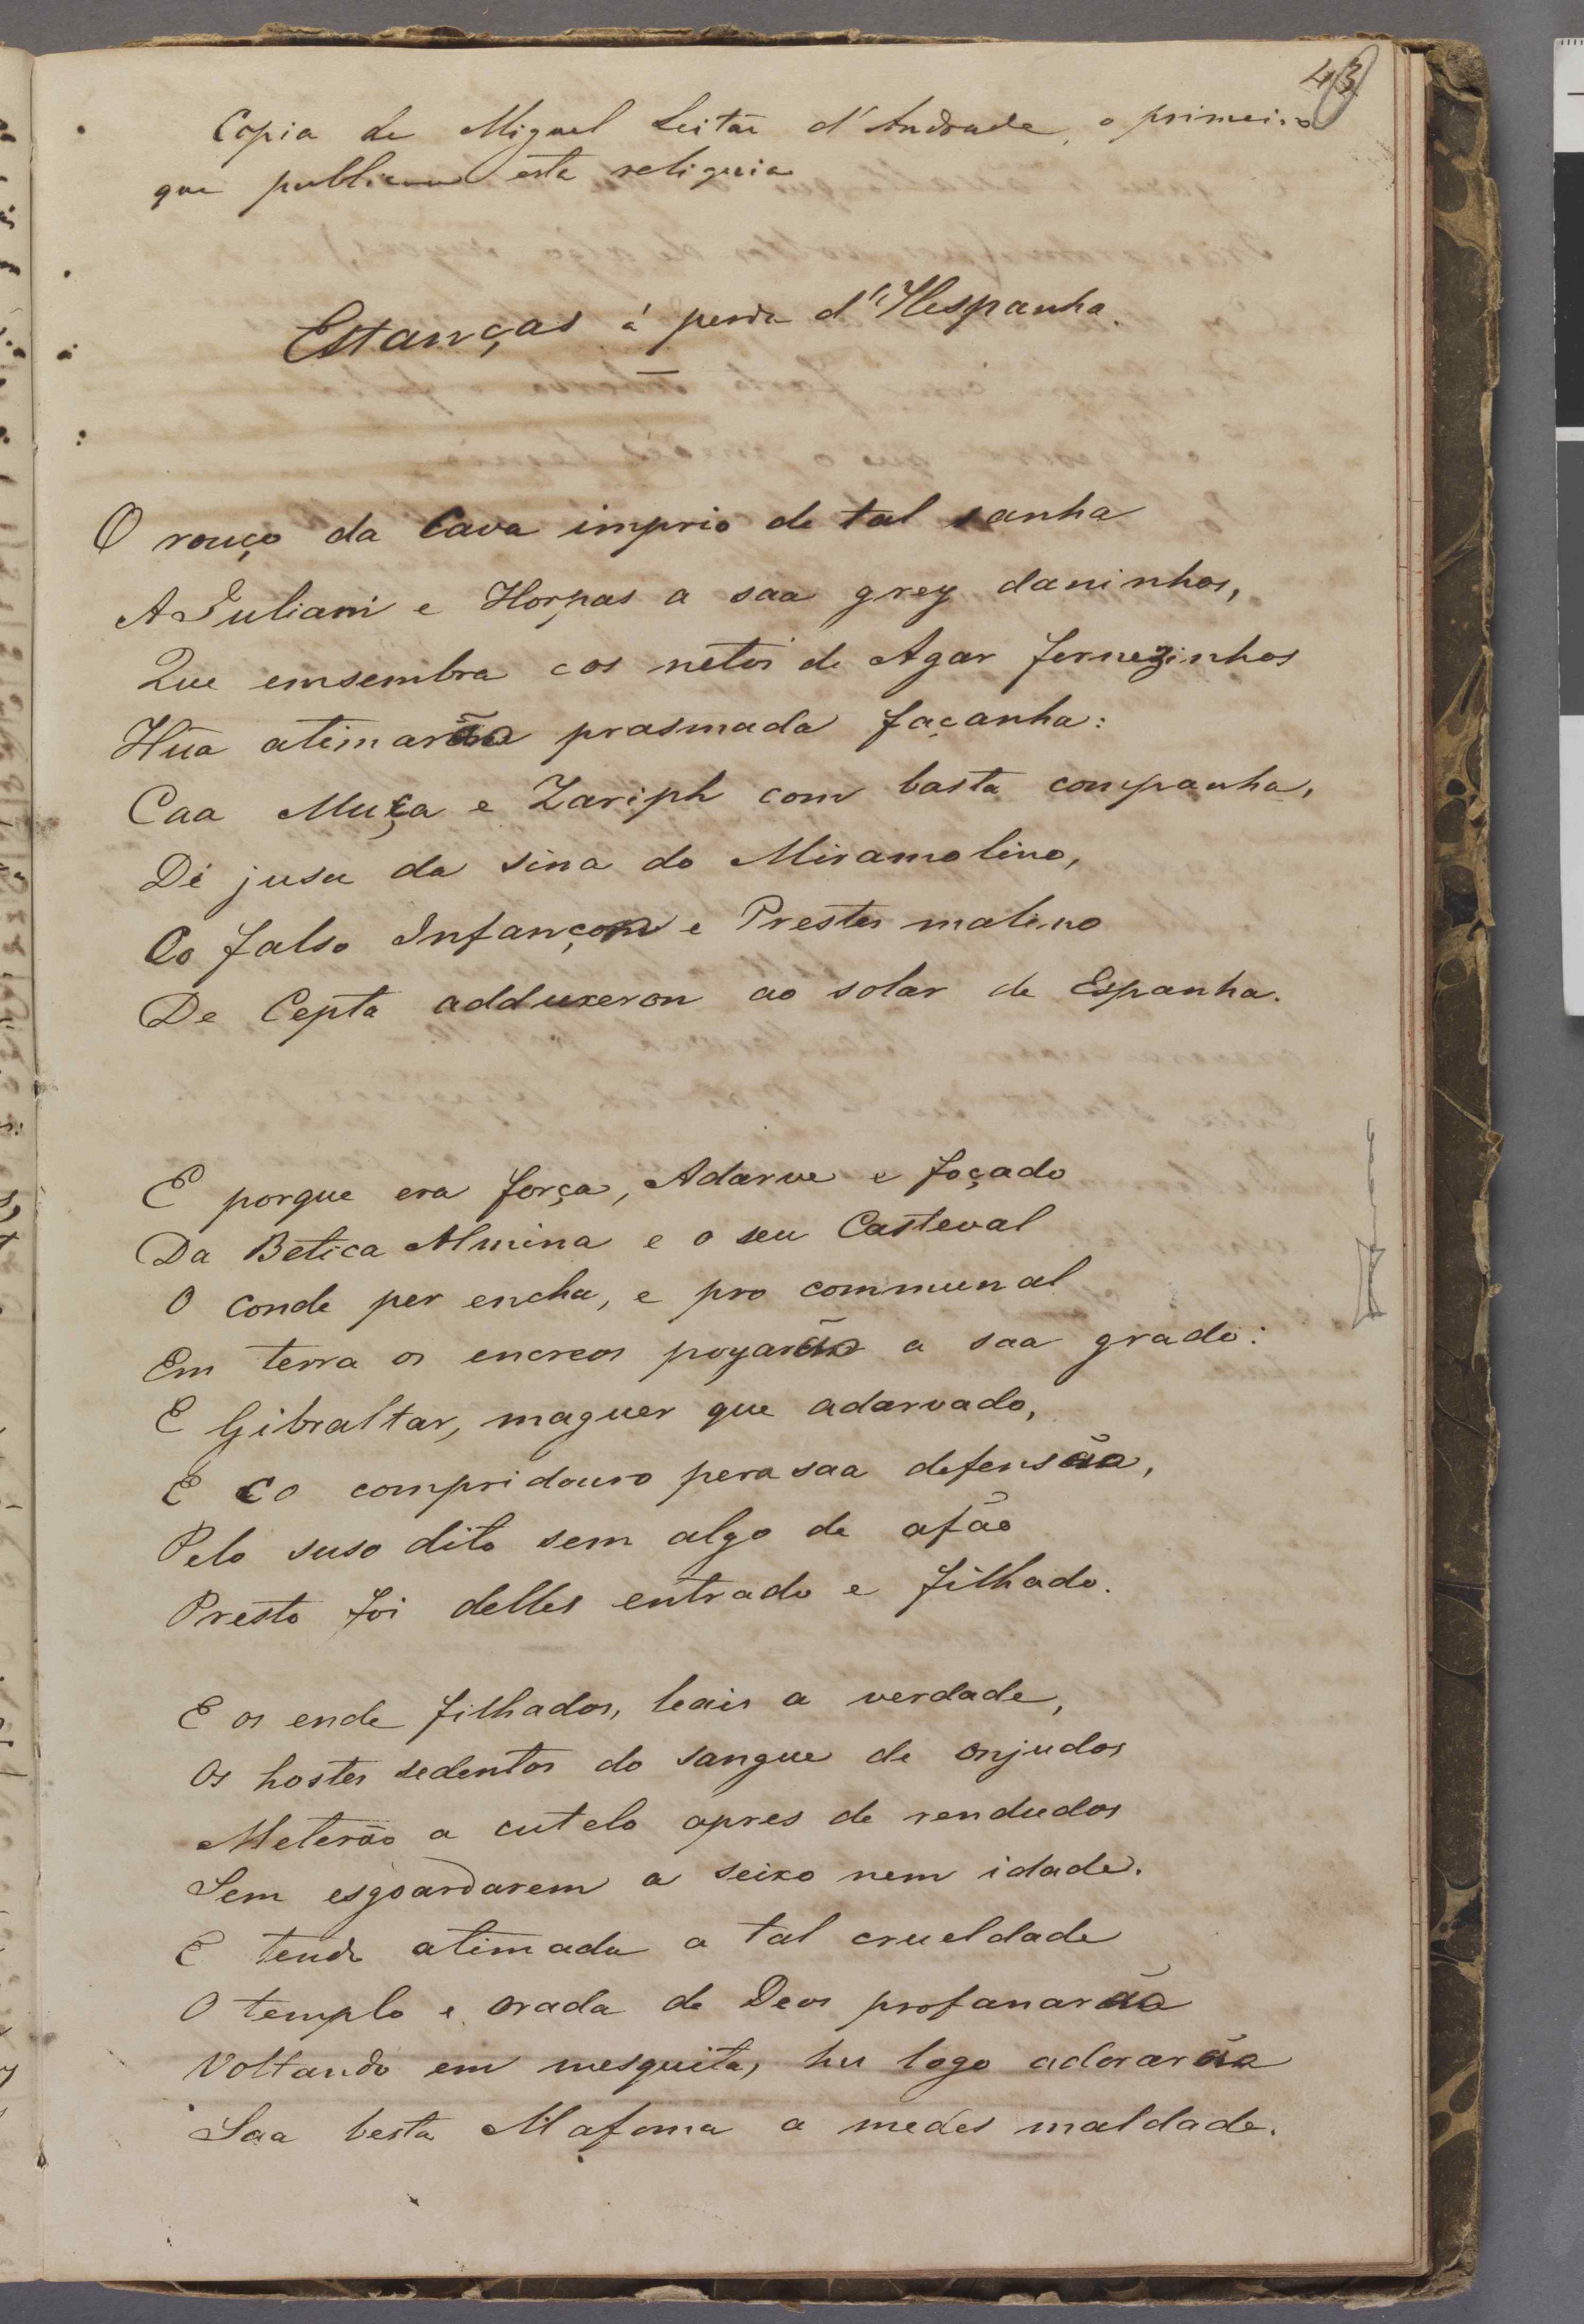 43
Copia de Miguel Leitão d'Andrade, o primeiro
que publicou esta reliquia
Estanças á perda d'Hespanha.
O rouço da Cava imprio de tal sanha
A Juliani e Horpas a saa grey daninhos,
Que emsembra cos netos de Agar fornezinhos
Hũa atimarão prasmada façanha:
Caa Muça e Zariph com basta companha,
Di jusu da sina do Miramolino,
Co falso Infançom e Prestes malino
De Cepta adduxeron ao solar de Espanha.
E porque era força, Adarve e foçado
Da Betica Almina e o seu Casteval
O Conde per encha, e pro communal
Em terra os encreos poyarão a saa grado:
E Gibraltar, maguer que adarvado,
E co compridouro pera saa defensão,
Pelo suso dito sem algo de afão
Presto foi delles entrado e filhado.
E os ende filhados, leais a verdade,
Os hostes sedentos do sangue de onjudos
Meterão a cutelo apres de rendudos
Sem esgoardarem a seixo nem idade.
E tende atimada a tal crueldade
O templo e orada de Deos profanarão
Voltando em mesquita, hu logo adorarão
Saa besta Mafoma a medés maldade.